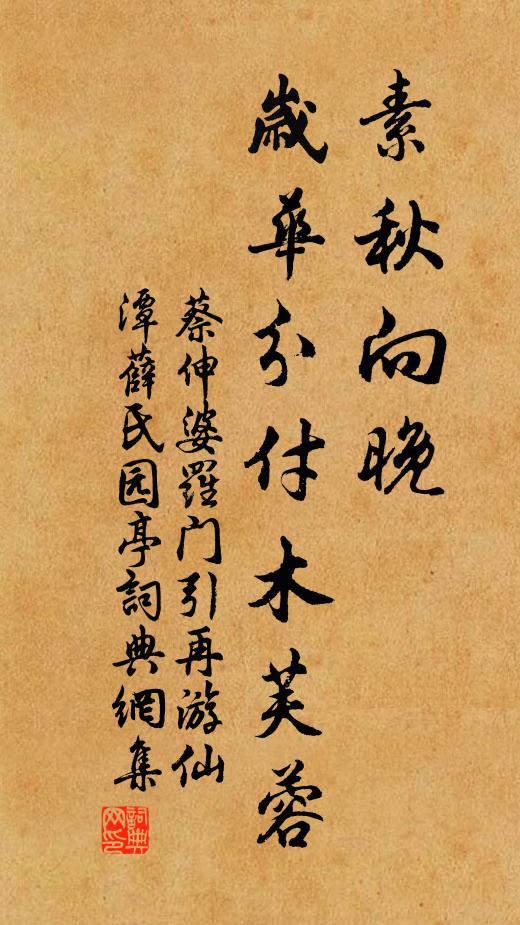 素秋向晚
歲華分付木芙蓉
蔡伸婆羅門引再游仙
潭薛氏园亭詞典網集
詞典网印